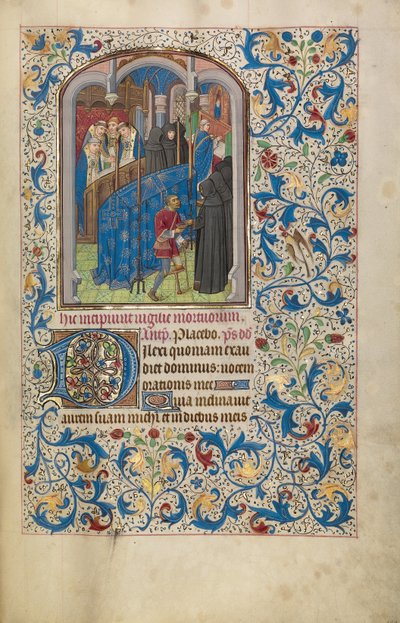 hic incipiunt vigilie mortuorum,
Antiph. Placebo. ps dd
Dilexi quoniam exau
diet dominus: vocem
orationis mee
Quia inclinavit
aurem suam michi et in diebus meis